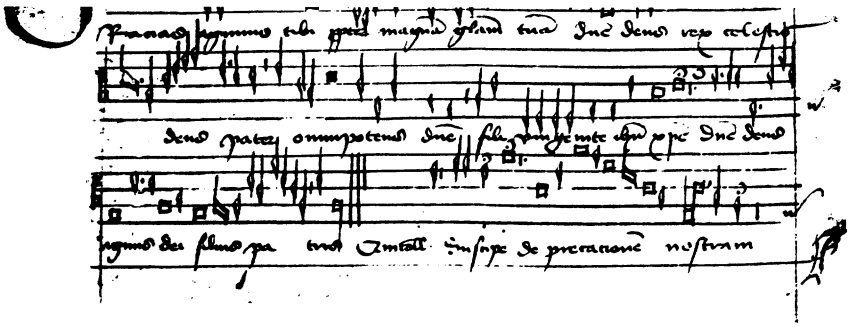 Gracias agimus tibi ppter magnā glam tuā dne deus rex celestis
deus pater omnipotens dne fili vnigenite ihu xpe dne deus
agnus dei filius pa tris Qui toll Suscipe deprecationē nostram